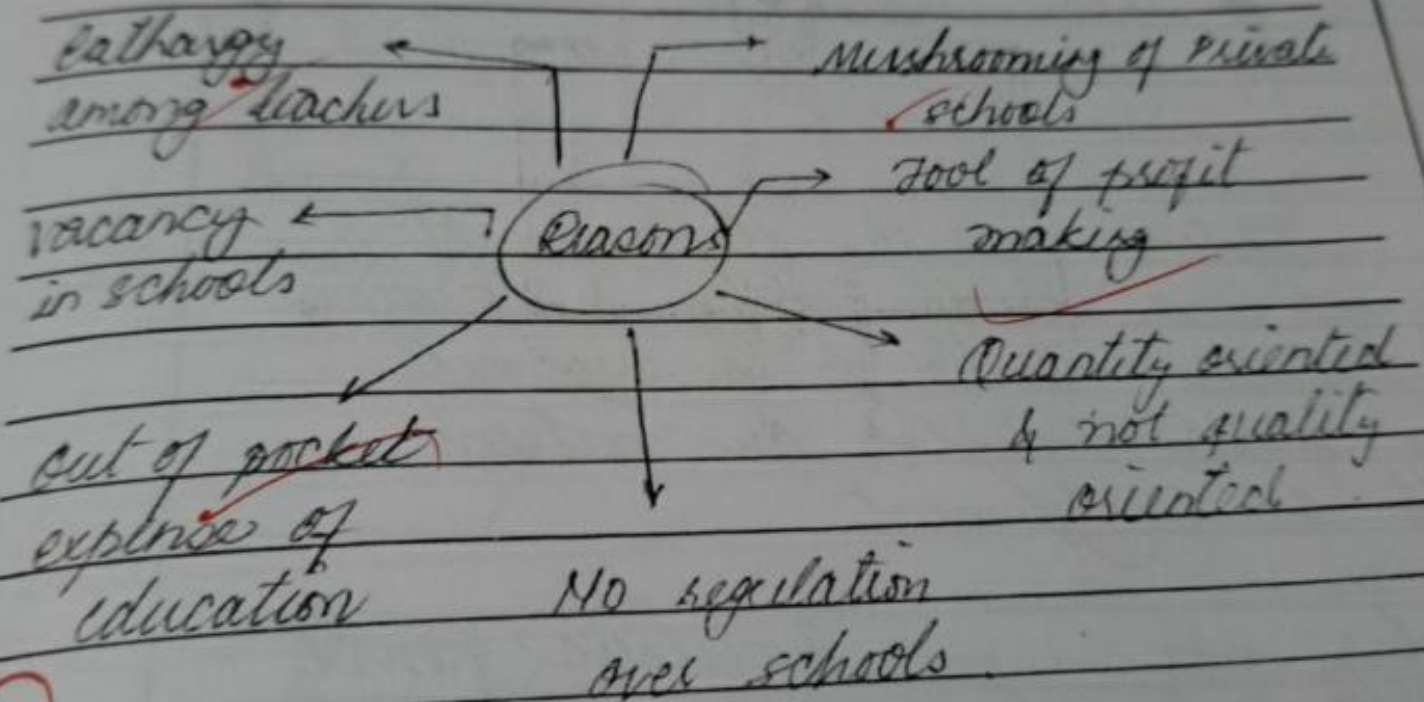 Lathargy
among teachers
Mushrooming of Private
schools
Reasons
Tool of profit
making
vacancy
in schools
Quantity oriented
& not quality
oriented
out of pocket
expense of
education
No regulation
over schools.